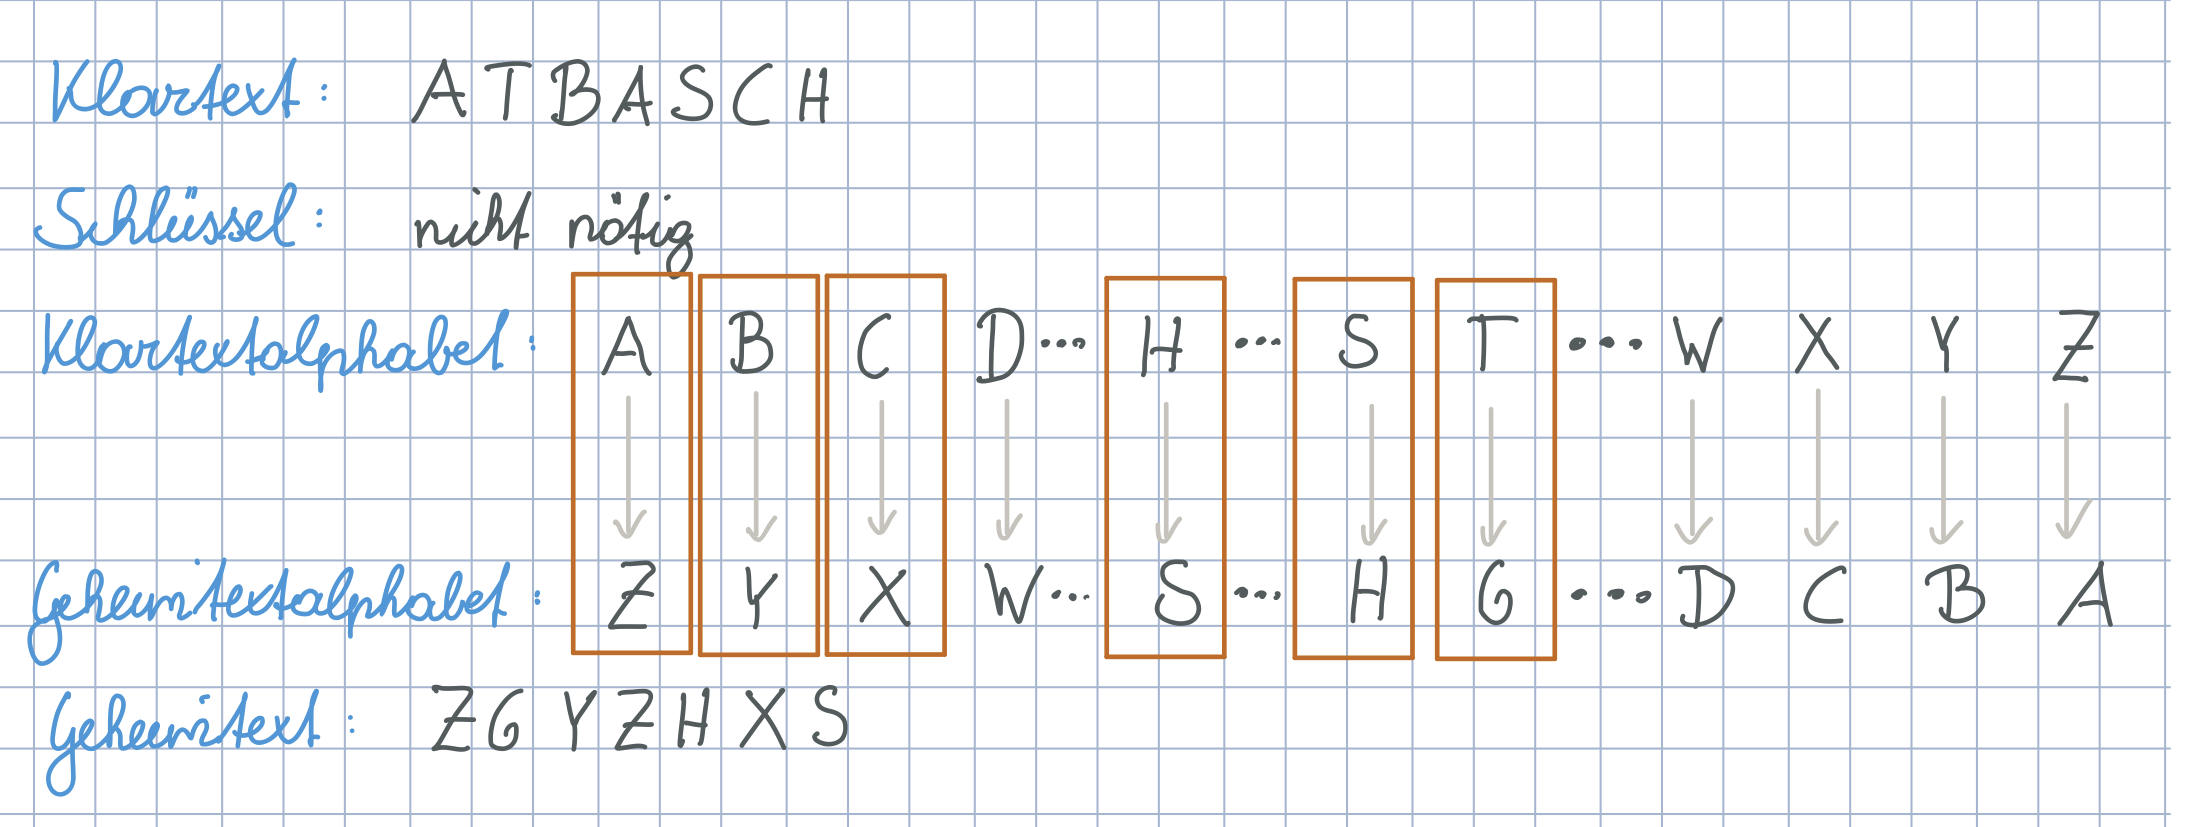 Klartext: ATBASCH
Schlüssel: nicht nötig
Klartextalphabet: A B C D... H ... S T ... W X Y Z
Geheimtextalphabet: Z Y X W... S ... H G ... D C B A
Geheimtext: ZGYZHXS